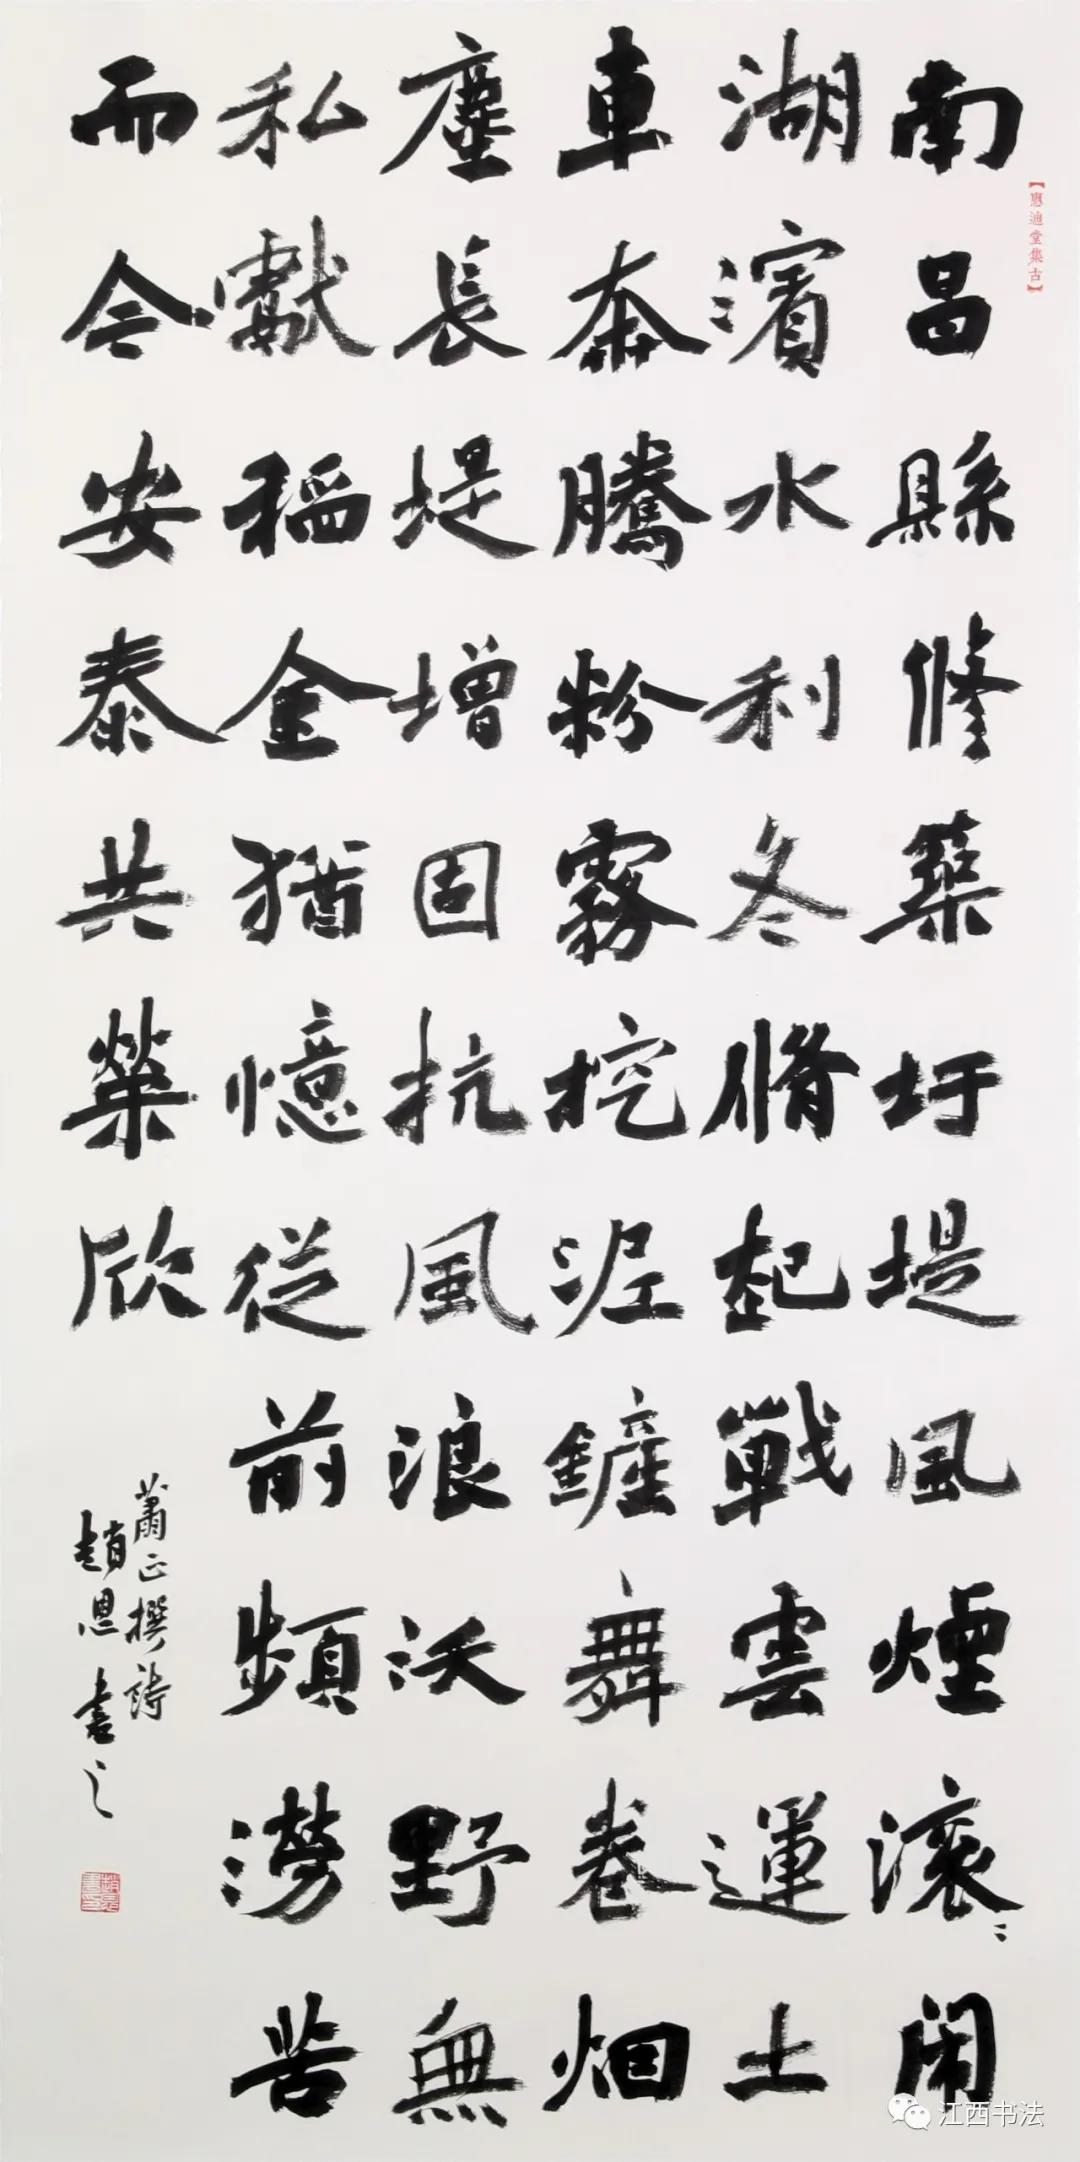 【應迪堂集古】
南昌縣修築圩堤風煙滾〻闹
湖濱水利冬脩起戰雲運土
車奔騰粉霧挖泥鏟舞卷烟
塵長堤增固抗風浪沃野無
私獻稻金猶憶從前頻澇苦
而今安泰共榮欣
蕭正撰詩
趙恩書之
江西书法